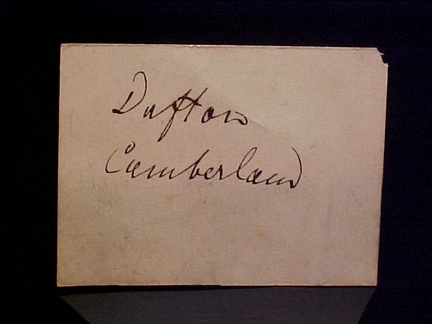 Dufton
Cumberland